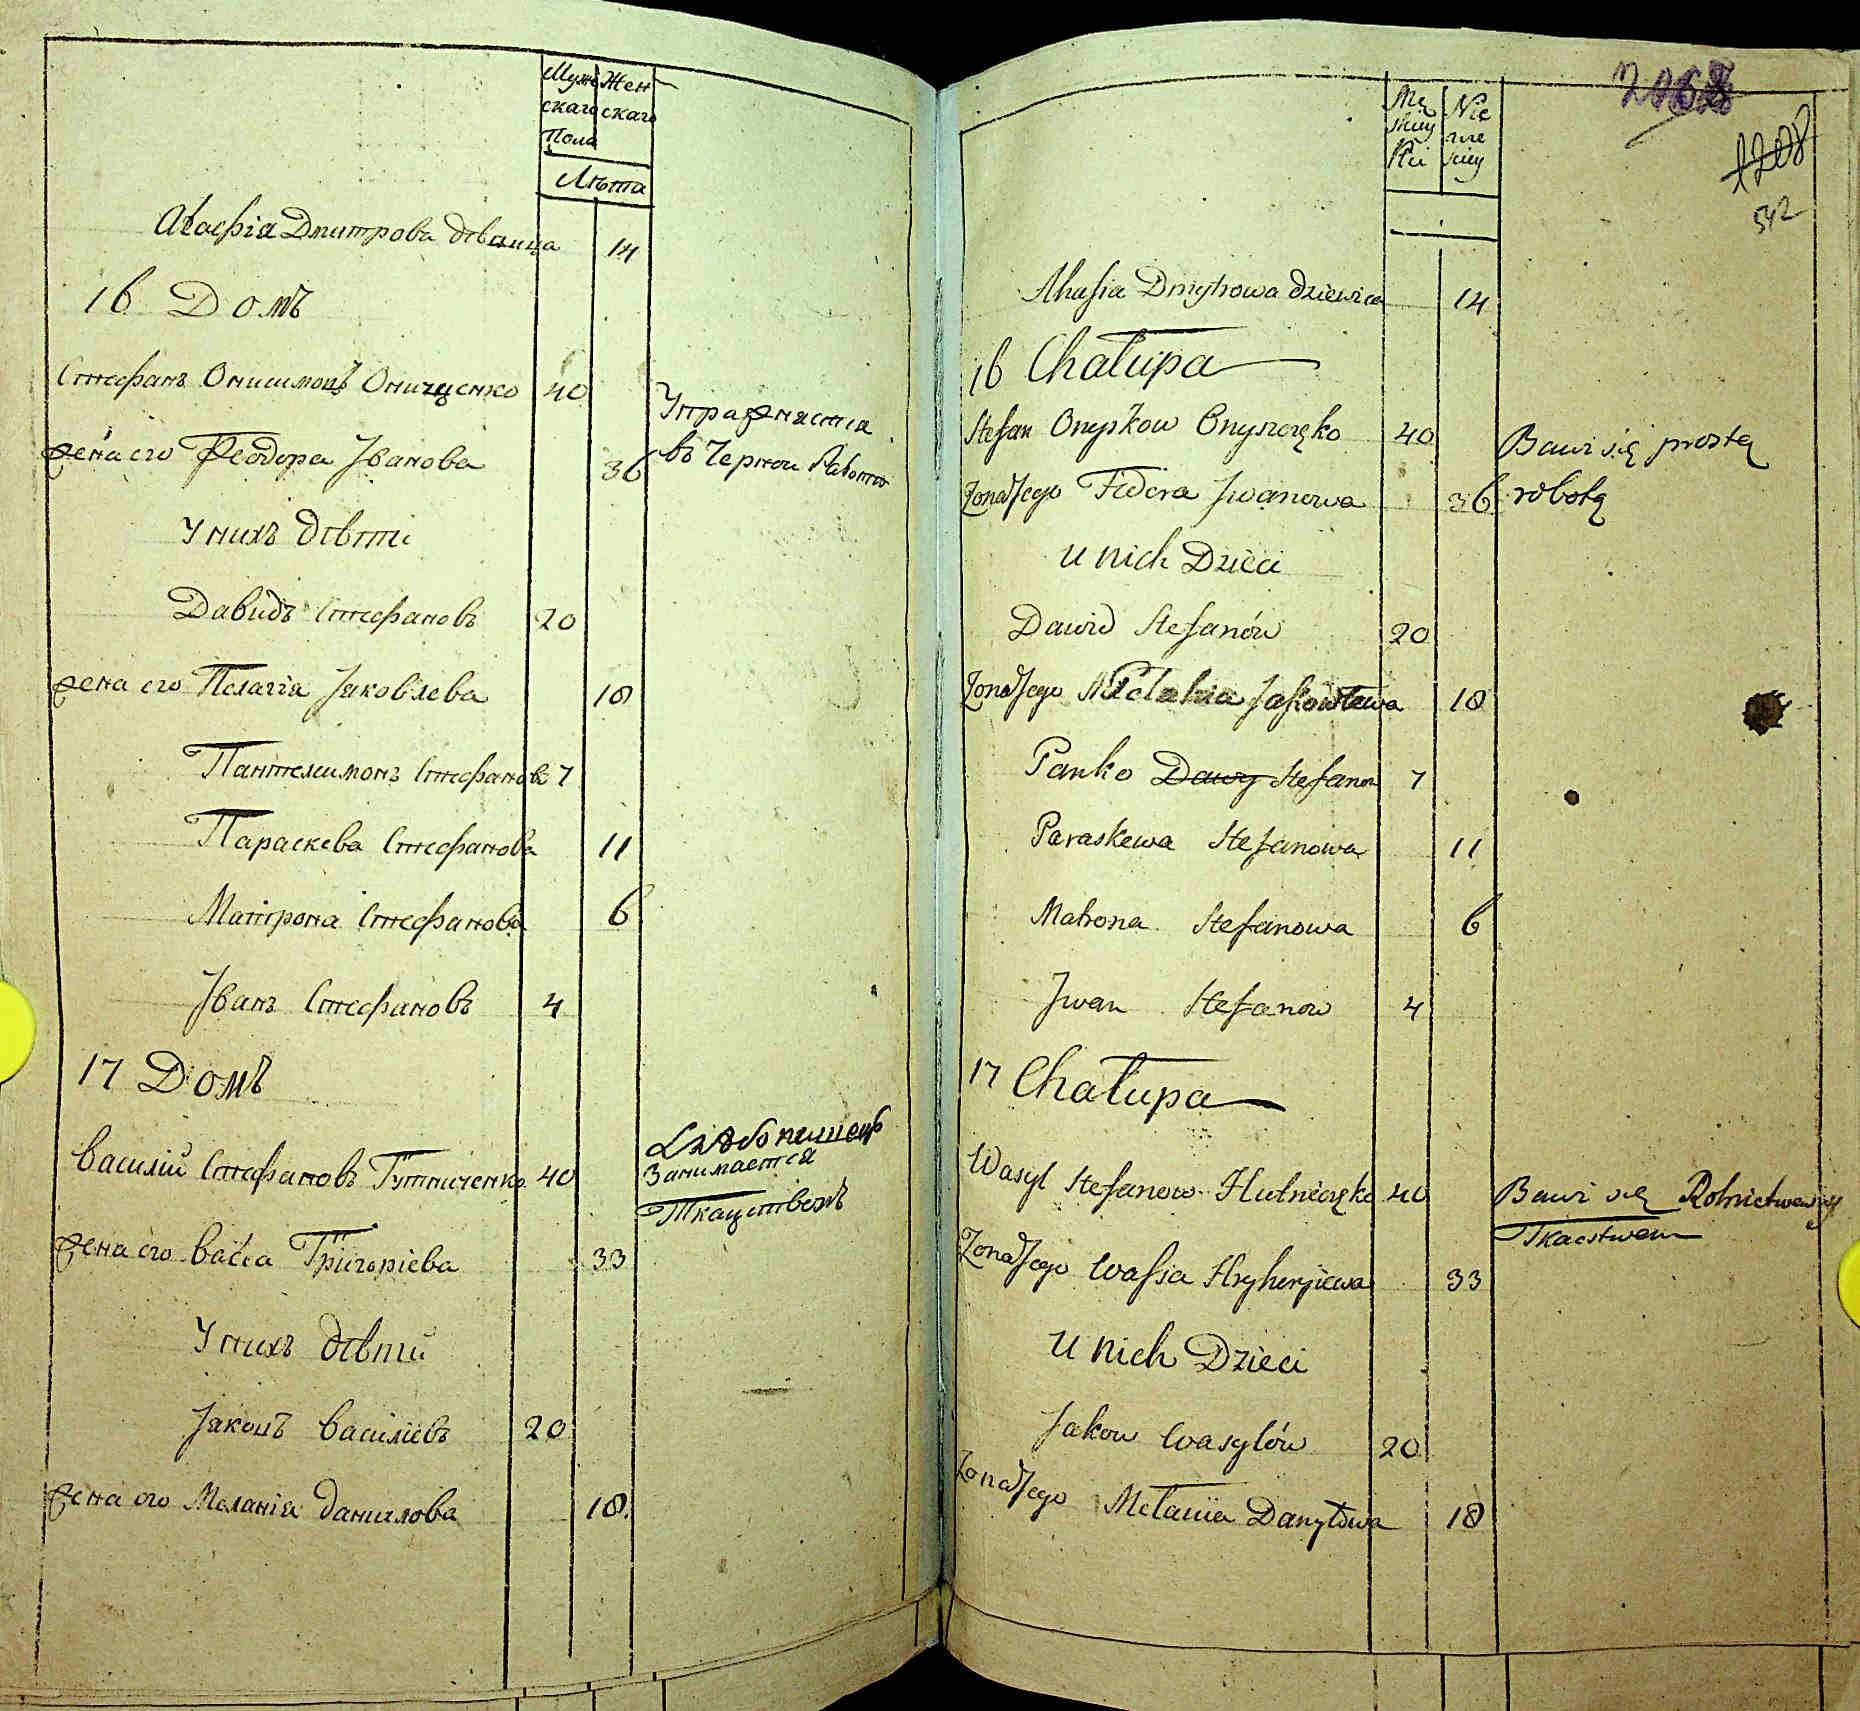 Муж Жен
скаго скаго
Пола
Лѣта
Агафія Дмитрова дѣвица 14
16 Домъ
Стефанъ Онисимовъ Онищенко 40
Упражняется
жена его Феодора Іванова 36
въ Черной Работѣ
У нихъ дѣти
Давидъ Стефановъ 20
жена его Пелагія Јаковлева 18
Пантелимонъ Стефановъ 7
Параскева Стефанова 11
Матрона Стефанова 6
Іванъ Стефановъ 4
17 Домъ
Хлѣбопашец
Василій Стефановъ Гутниченко 40
Занимается
Ткачствомъ
жена его Васса Григоріева 33
У нихъ дѣти
Јаковъ Василіевъ 20
жена его Меланія Данилова 18
Mę Nie
skiey wie
Płci skiey
1208
542
Ahafia Dmytrowa dziewica 14
16 Chałupa
Stefan Onyśkow Onyszczęko 40
Bawi się prostą
Zona Jego Fedora Jwanowa 36
robotą
U nich Dzieci
Dawid Stefanów 20
Zona Jego Pelahia Jakowlewa 18
Panko Dawy Stefanow 7
Paraskewa Stefanowa 11
Matrona Stefanowa 6
Jwan Stefanow 4
17 Chałupa
Wasyl Stefanow Hutniczęko 40
Bawi się Rolnictwem y
Tkactwem
Zona Jego Wassa Hryhoryiewa 33
U nich Dzieci
Jakow Wasylów 20
Zona Jego Mełania Danyłowa 18